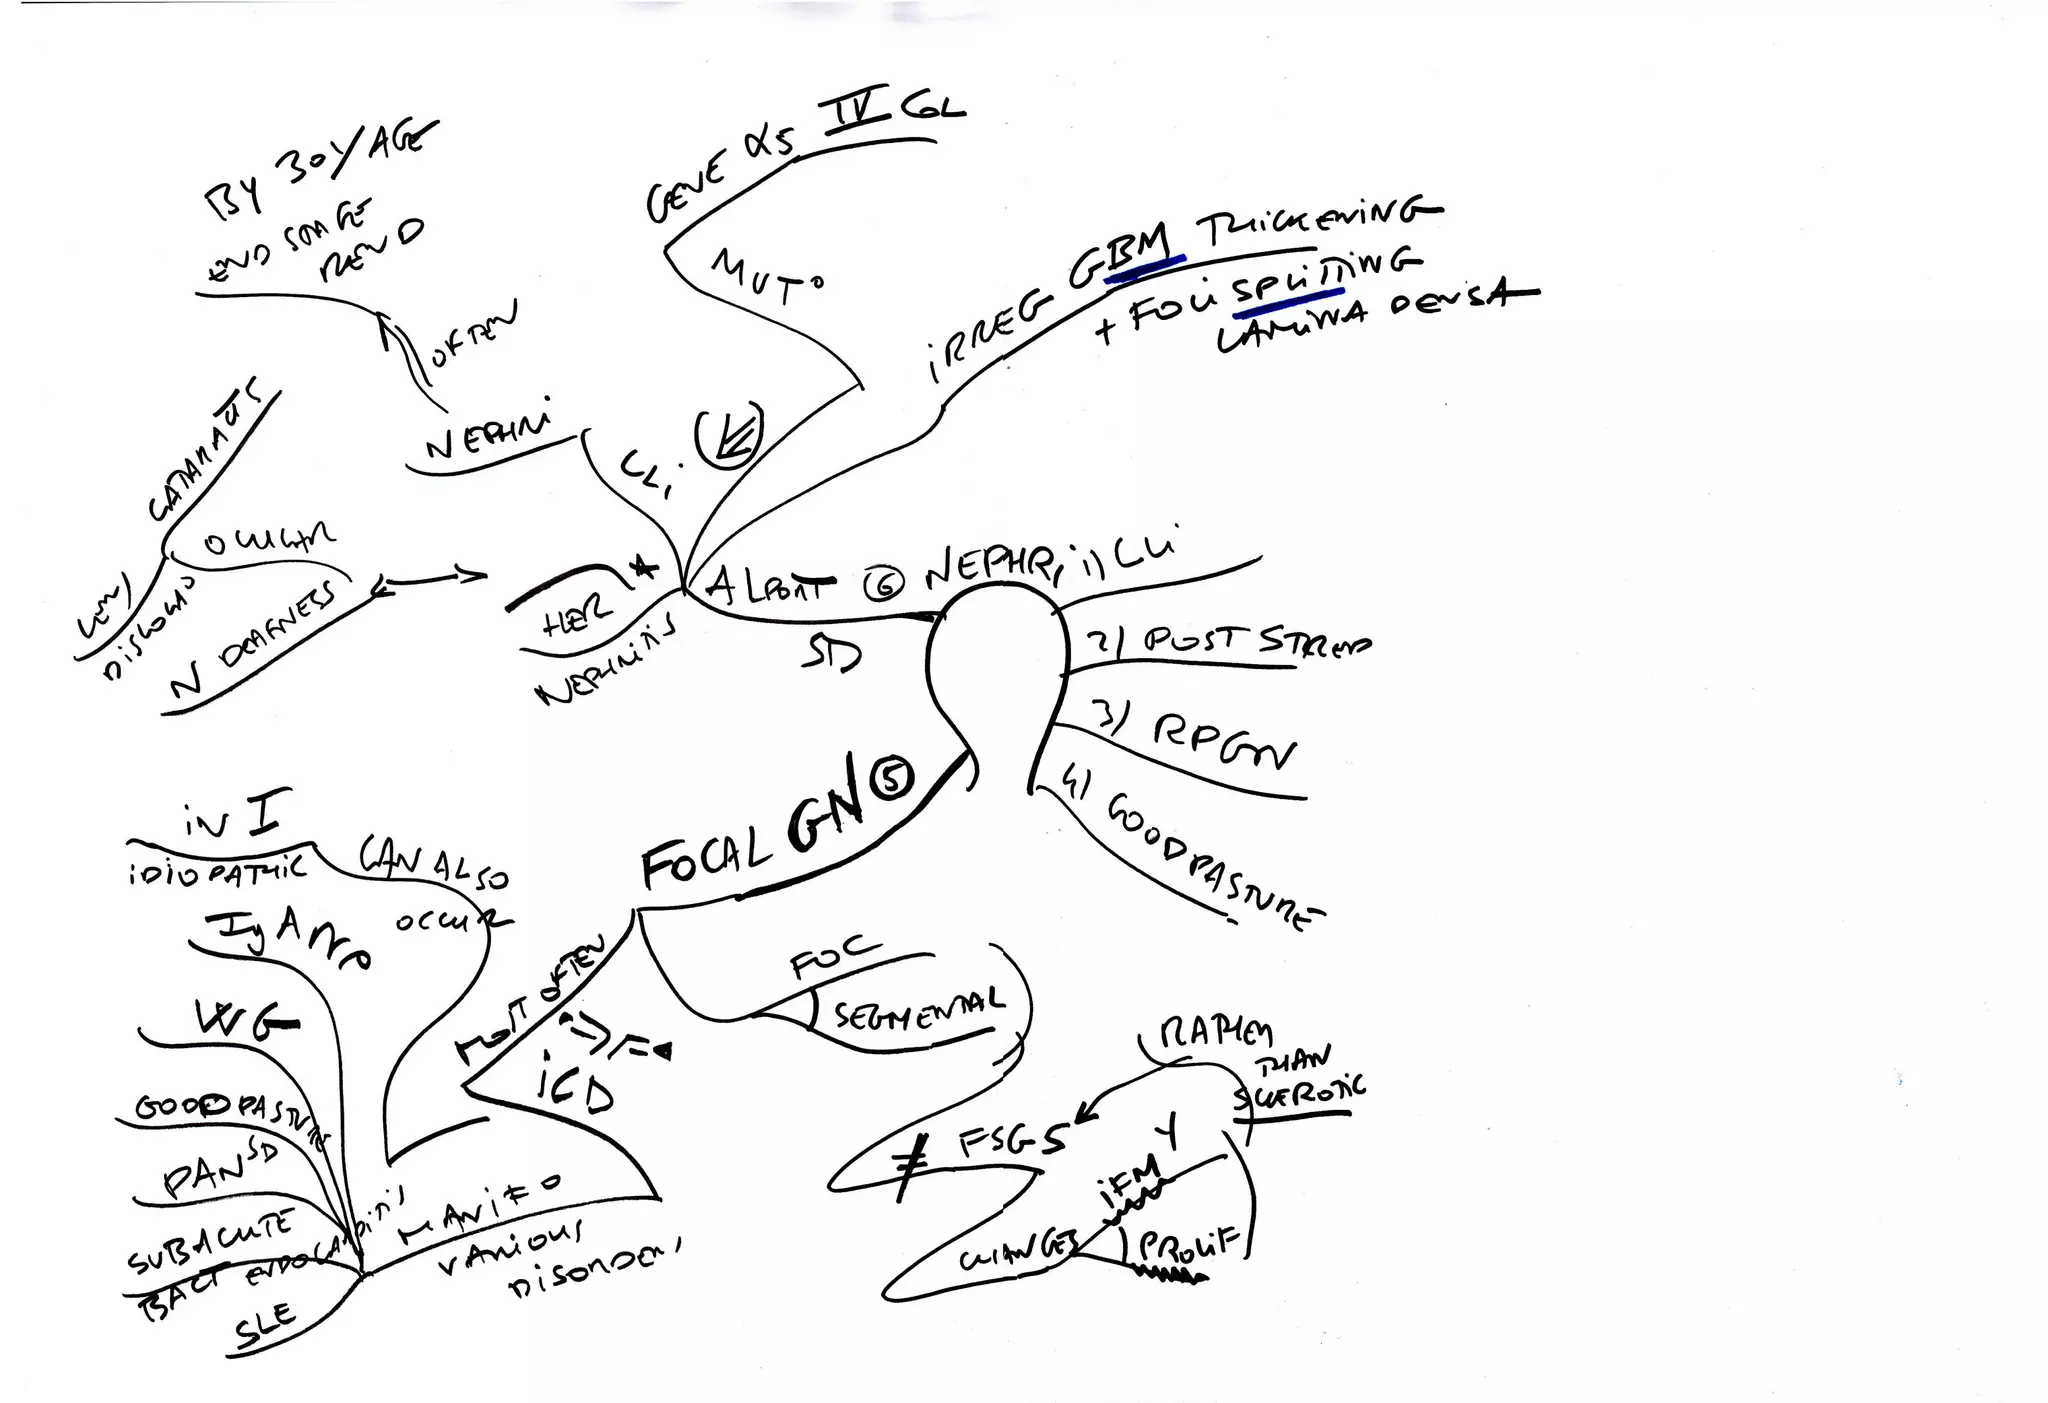 GENE α5 IV COL
MUTO
BY 30Y AGE
END STAGE
REND
OFTEN
NEPHRI
CLi.
IRREG GBM THICKENING
+ FOCi SPLITTING
LAMINA DENSA
CATARACTS
OCULAR
LENS
DISLOCAO
N DEAFNESS
HER
NEPHRITIS
ALPORT ⑥
SD
NEPHRi
1) CLi
2) POST STREP
3) RPGN
4) GOODPASTURE
FOCAL GN ⑤
MOST OFTEN
ICD
FOC
SEGMENTAL
≠ FSGS
RATHER
THAN
SCLEROTIC
CHANGES
IFMY
PROLIF
iN I
iDiOPATHiC
CAN ALSO
OCCUR
IgA
WG
GOODPASTURE
SD
PAN
SUBACUTE
BACT ENDOCARDITIS
SLE
MANIFO
VARIOUS
DISORDERS